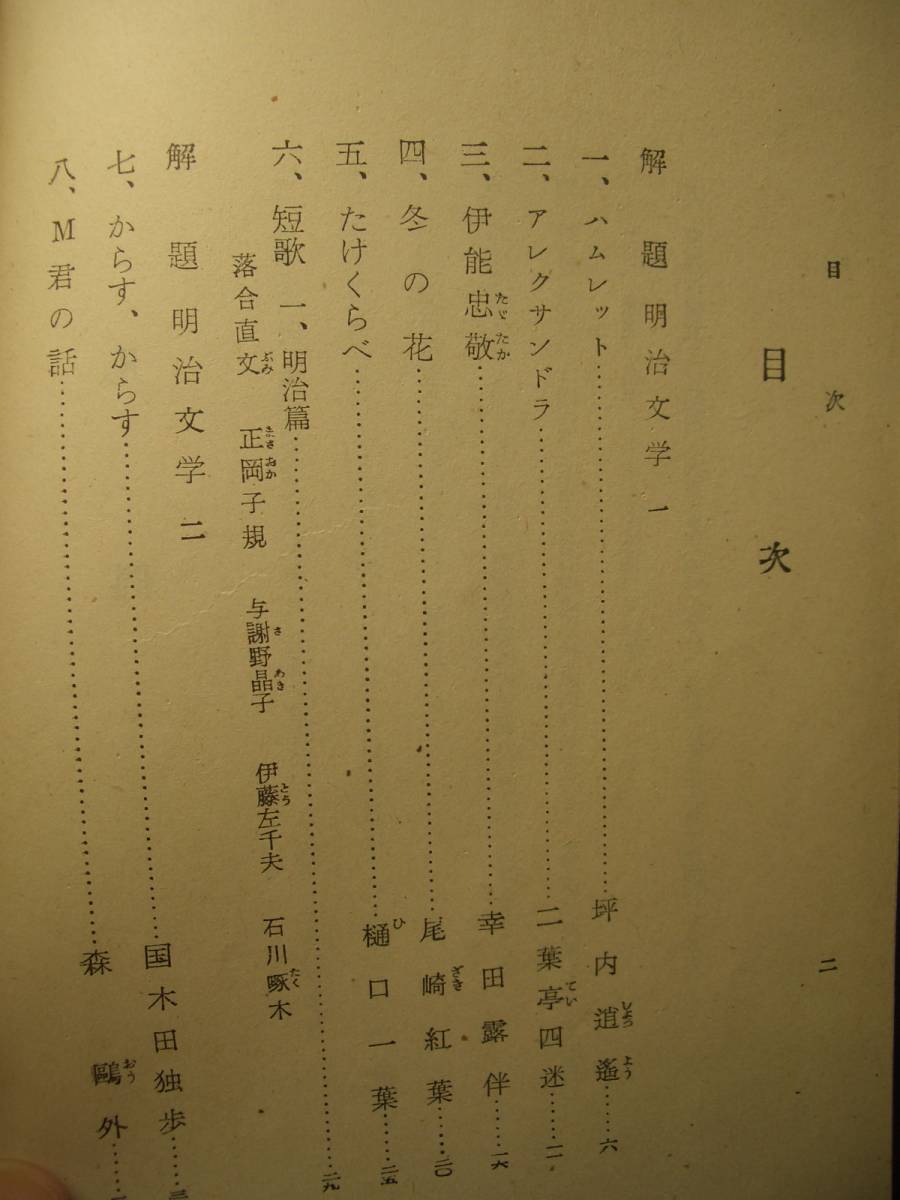 目次
二
目次
解題 明治文学 一
一、ハムレット……坪内逍遙……六
二、アレクサンドラ……二葉亭四迷……一一
三、伊能忠敬……幸田露伴……一六
四、冬の花……尾崎紅葉……二〇
五、たけくらべ……樋口一葉……二五
六、短歌 一、明治篇……二九
落合直文 正岡子規 与謝野晶子 伊藤左千夫 石川啄木
解題 明治文学 二
七、からす、からす……国木田独歩……
八、M君の話……森鷗外……